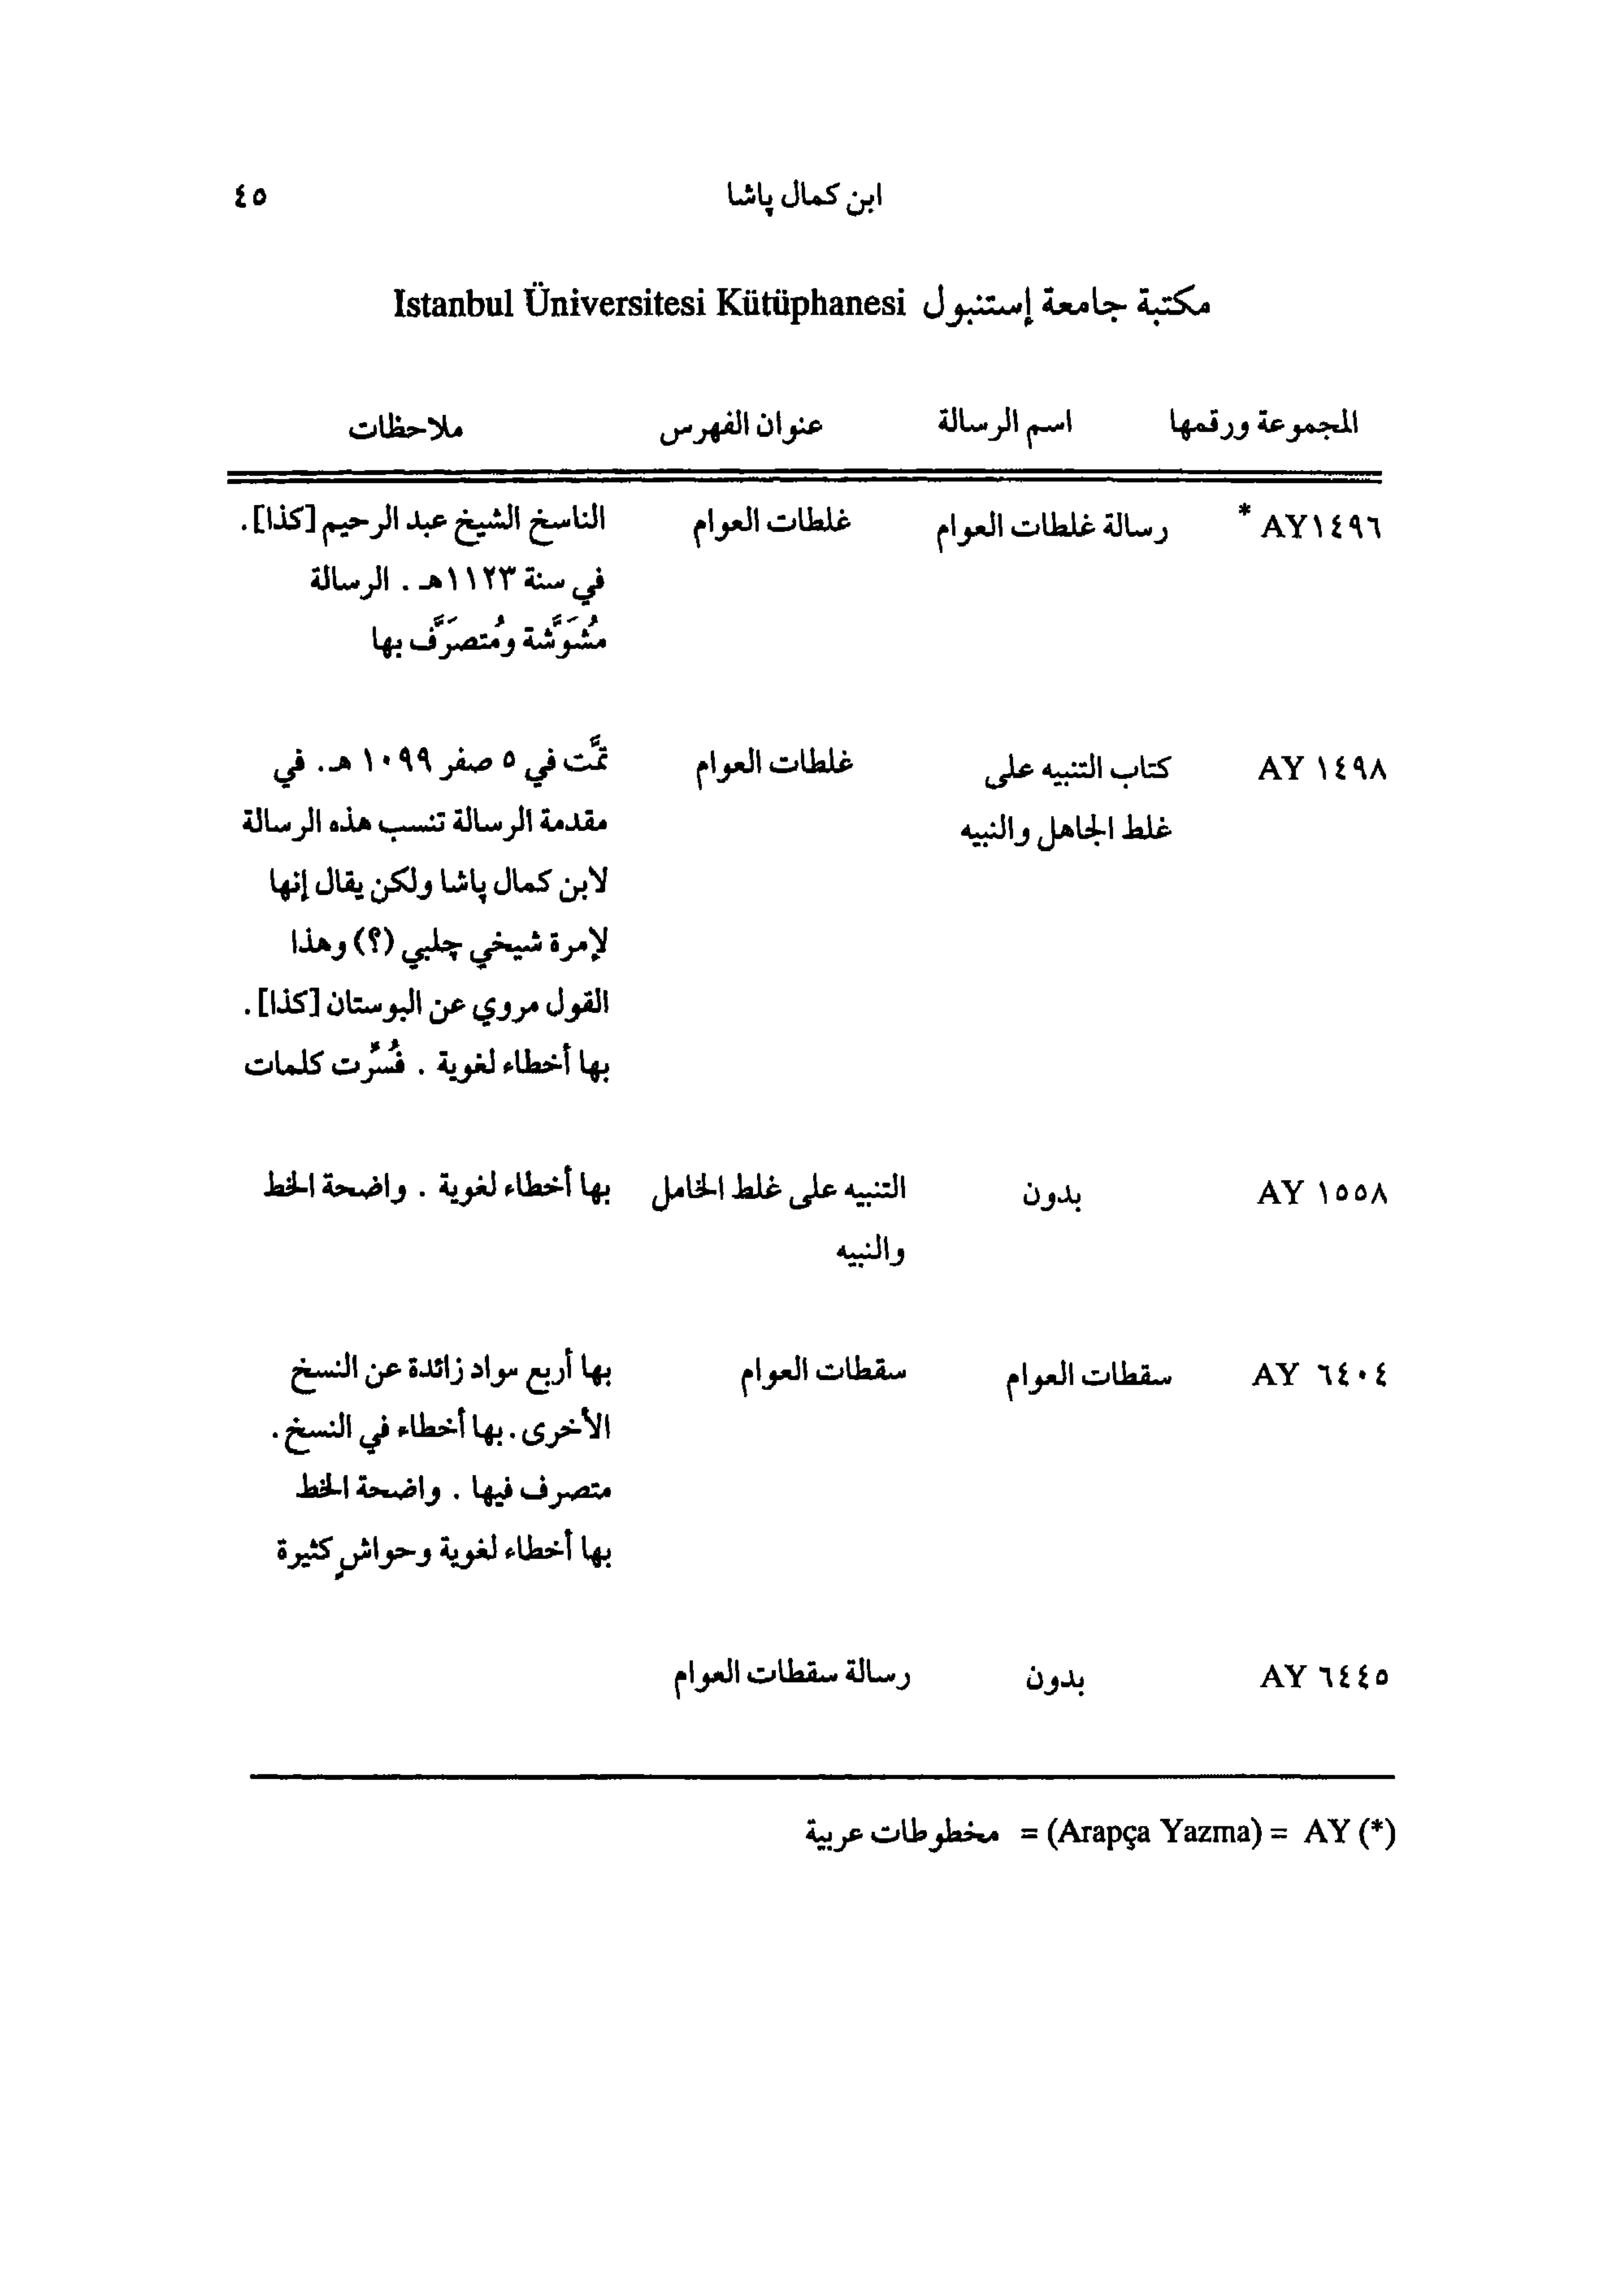 ابن كمال پاشا ٤٥
مكتبة جامعة إستنبول Istanbul Üniversitesi Kütüphanesi
المجموعة ورقمها اسم الرسالة عنوان الفهرس ملاحظات
AY١٤٩٦ * رسالة غلطات العوام غلطات العوام الناسخ الشيخ عبد الرحيم [كذا].
في سنة ١١٢٣هـ . الرسالة
مُشَوَّشة ومُتصَرَّف بها
AY ١٤٩٨ كتاب التنبيه على غلطات العوام تمَّت في ٥ صفر ١٠٩٩ هـ. في
غلط الجاهل والنبيه مقدمة الرسالة تنسب هذه الرسالة
لابن كمال پاشا ولكن يقال إنها
لإمرة شيخي چلبي (؟) وهذا
القول مروي عن البوستان [كذا].
بها أخطاء لغوية . فُسِّرت كلمات
AY ١٥٥٨ بدون التنبيه على غلط الخامل بها أخطاء لغوية . واضحة الخط
والنبيه
AY ٦٤٠٤ سقطات العوام سقطات العوام بها أربع مواد زائدة عن النسخ
الأخرى. بها أخطاء في النسخ.
متصرف فيها . واضحة الخط
بها أخطاء لغوية وحواشٍ كثيرة
AY ٦٤٤٥ بدون رسالة سقطات العوام
(*) AY = (Arapça Yazma) = مخطوطات عربية